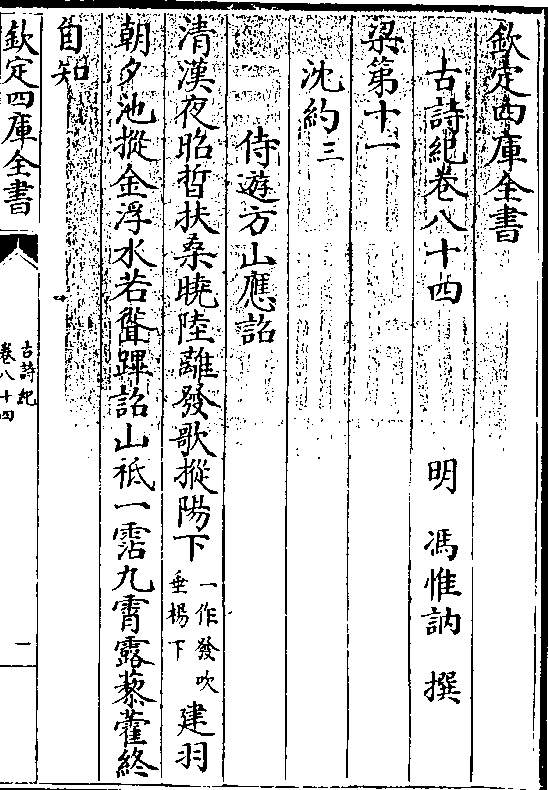 欽定四庫全書
古詩紀卷八十四
明 馮惟訥 撰
梁第十一
沈約三
侍遊方山應詔
清漢夜昭晳扶桑曉陸離發歌摐陽下一作發吹垂楊下建羽
朝夕池摐金浮水若聳蹕詔山祗一霑九霄露藜藿終
自知
欽定四庫全書
古詩紀
卷八十四
一